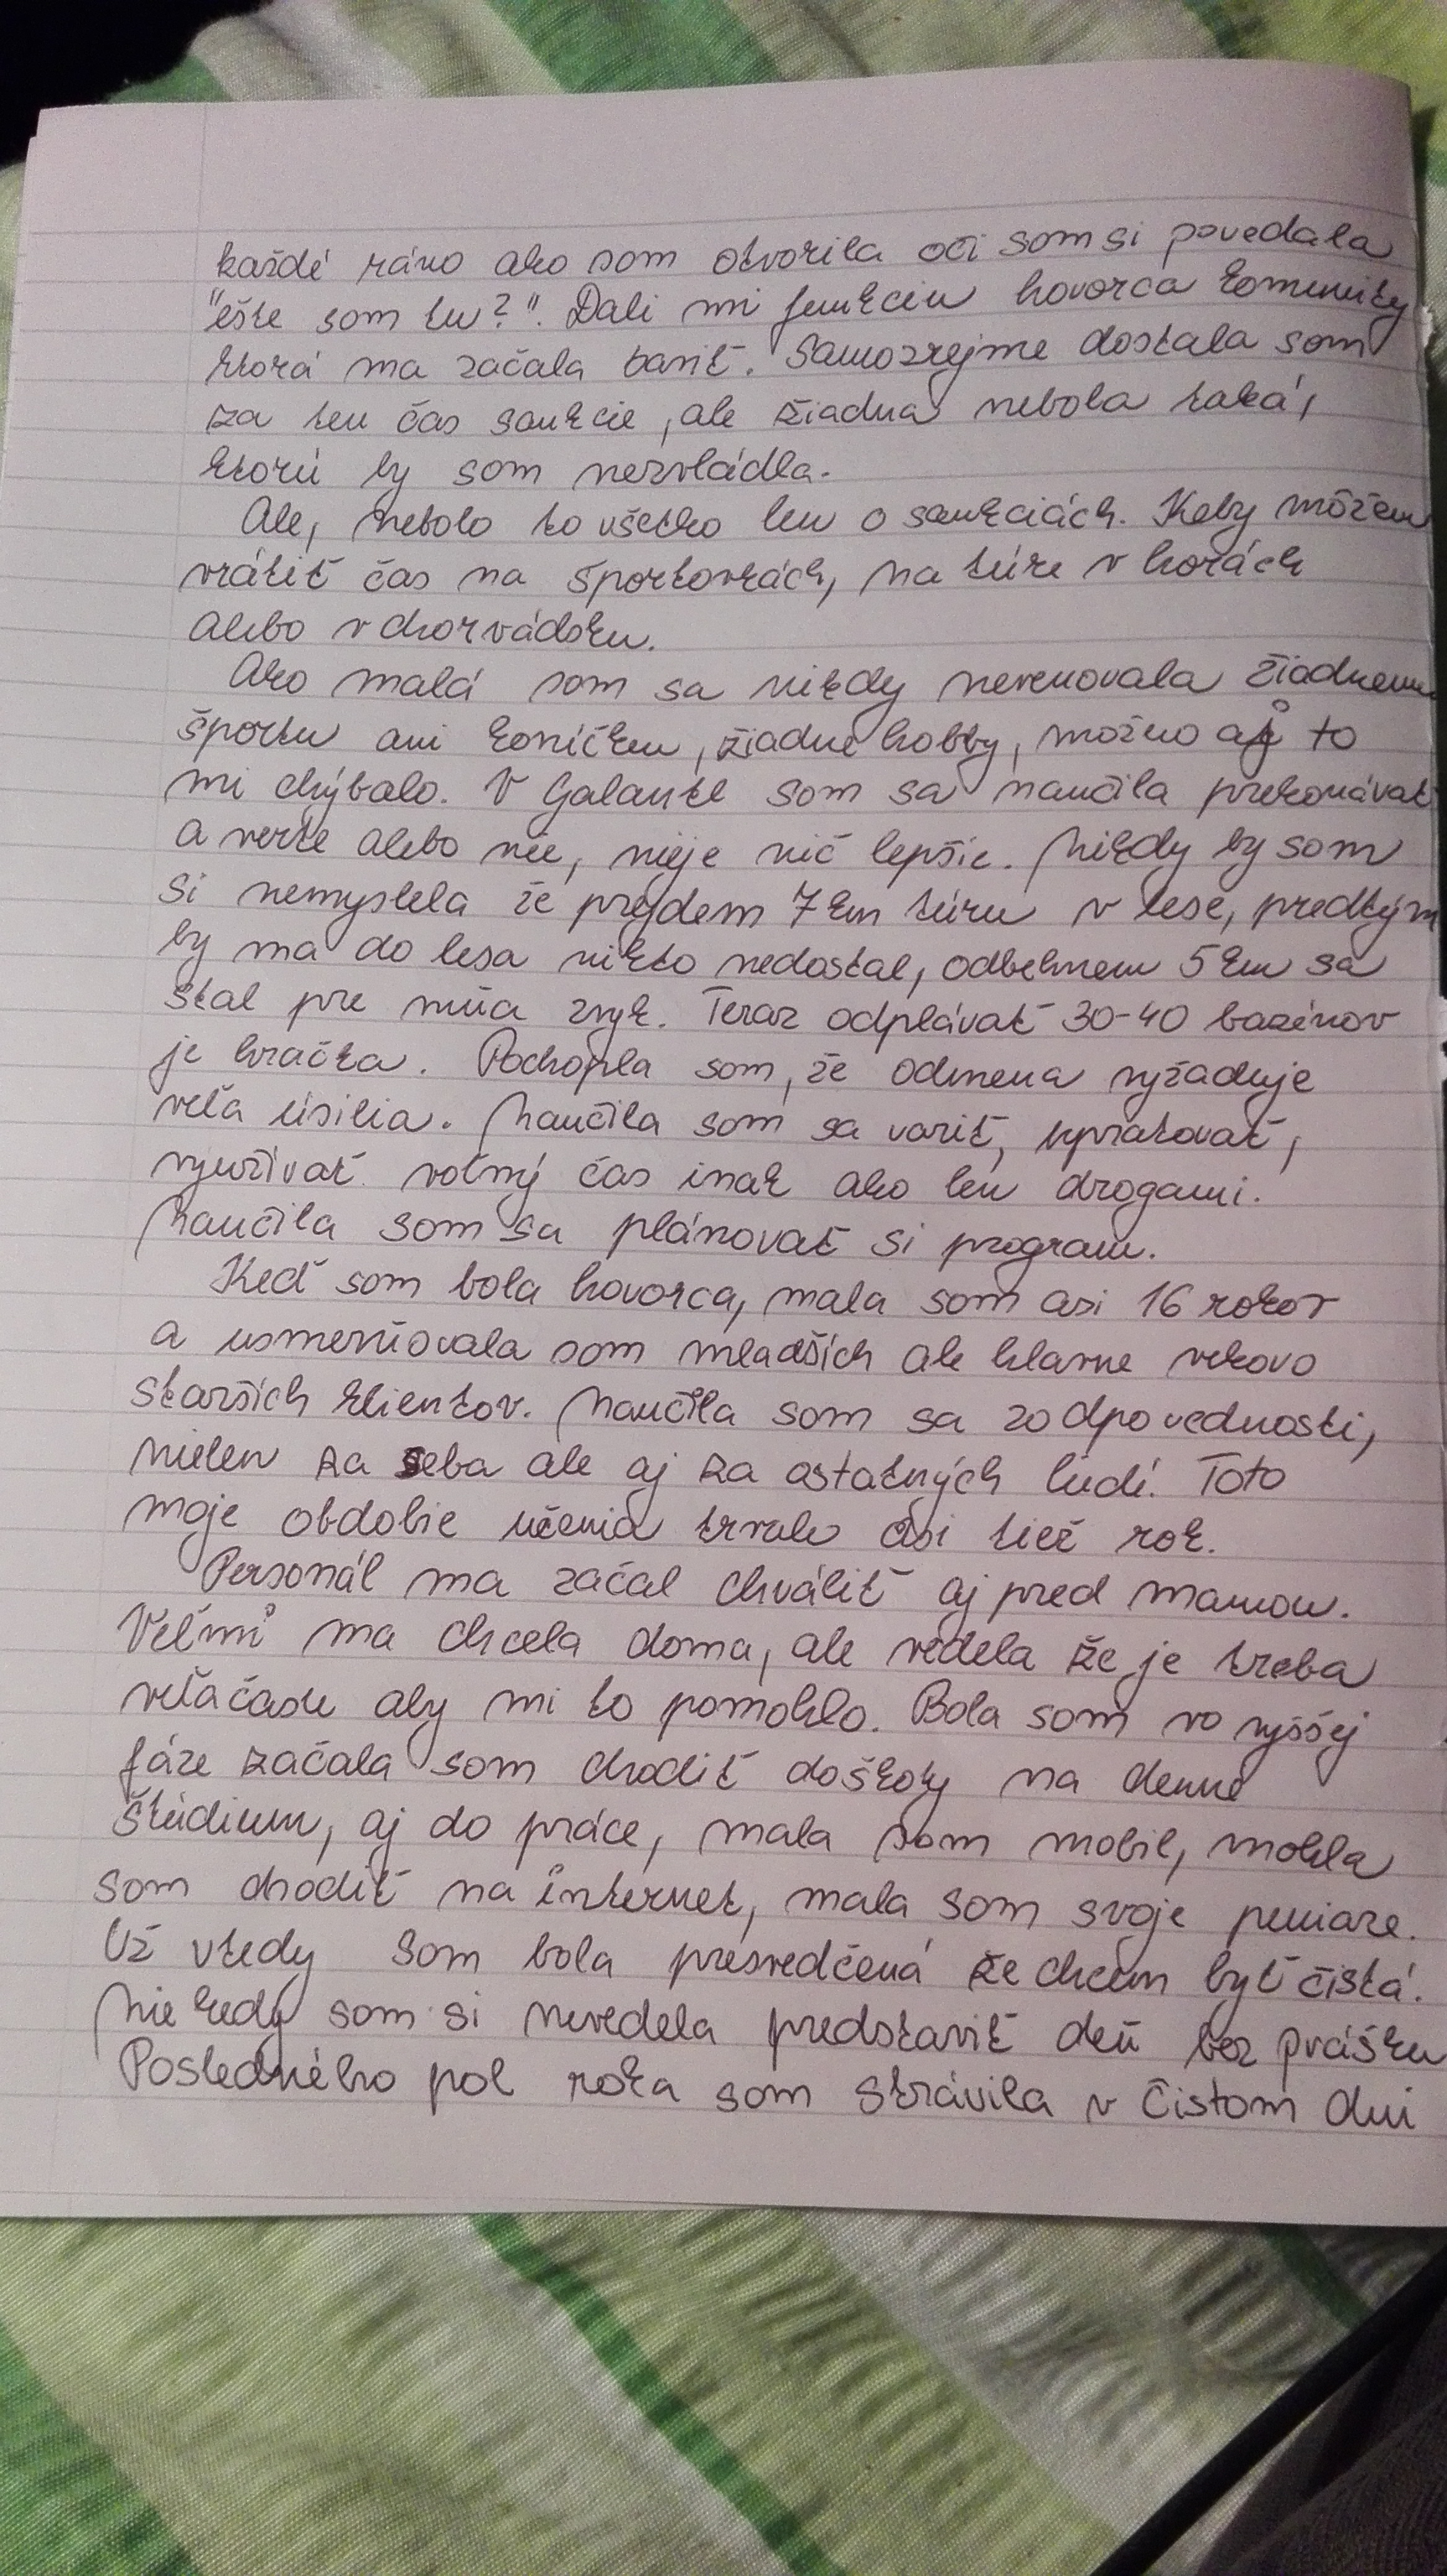 každé ráno ako som otvorila oči som si povedala
"ešte som tu?". Dali mi funkciu hovorca komunity
ktorá ma začala baviť. Samozrejme dostala som
za ten čas sankcie, ale žiadna nebola taká,
ktorú by som nezvládla.
Ale, nebolo to všetko len o sankciách. Keby môžem
vrátiť čas na športovkách, na túre v horách
alebo v chorvádsku.
Ako malá som sa nikdy nevenovala žiadnemu
športu ani koníčku, žiadne hobby, možno aj to
mi chýbalo. V Galante som sa naučila prekonávať
a verte alebo nie, nieje nič lepšie. Nikdy by som
si nemyslela že prejdem 7 km túru v lese, predtým
by ma do lesa nikto nedostal, odbehnem 5 km sa
stal pre mňa zvyk. Teraz odplávať 30-40 bazénov
je hračka. Pochopla som, že odmena vyžaduje
veľa úsilia. Naučila som sa variť, upratovať,
využívať voľný čas inak ako len drogami.
Naučila som sa plánovať si program.
Keď som bola hovorca, mala som asi 16 rokov
a usmerňovala som mladších ale hlavne vekovo
starších klientov. Naučila som sa zodpovednosti,
nielen za seba ale aj za ostatných ľudí. Toto
moje obdobie učenia trvalo asi tiež rok.
Personál ma začal chváliť aj pred mamou.
Veľmi ma chcela doma, ale vedela že je treba
veľa času aby mi to pomohlo. Bola som vo vyššej
fáze začala som chodiť doškoly na denné
štúdium, aj do práce, mala som mobil, mohla
som chodiť na internet, mala som svoje peniaze.
Už vtedy som bola presvedčená že chcem byť čistá.
Nie kedy som si nevedela predstaviť deň bez prášku
Posledného pol roka som strávila v Čistom dni